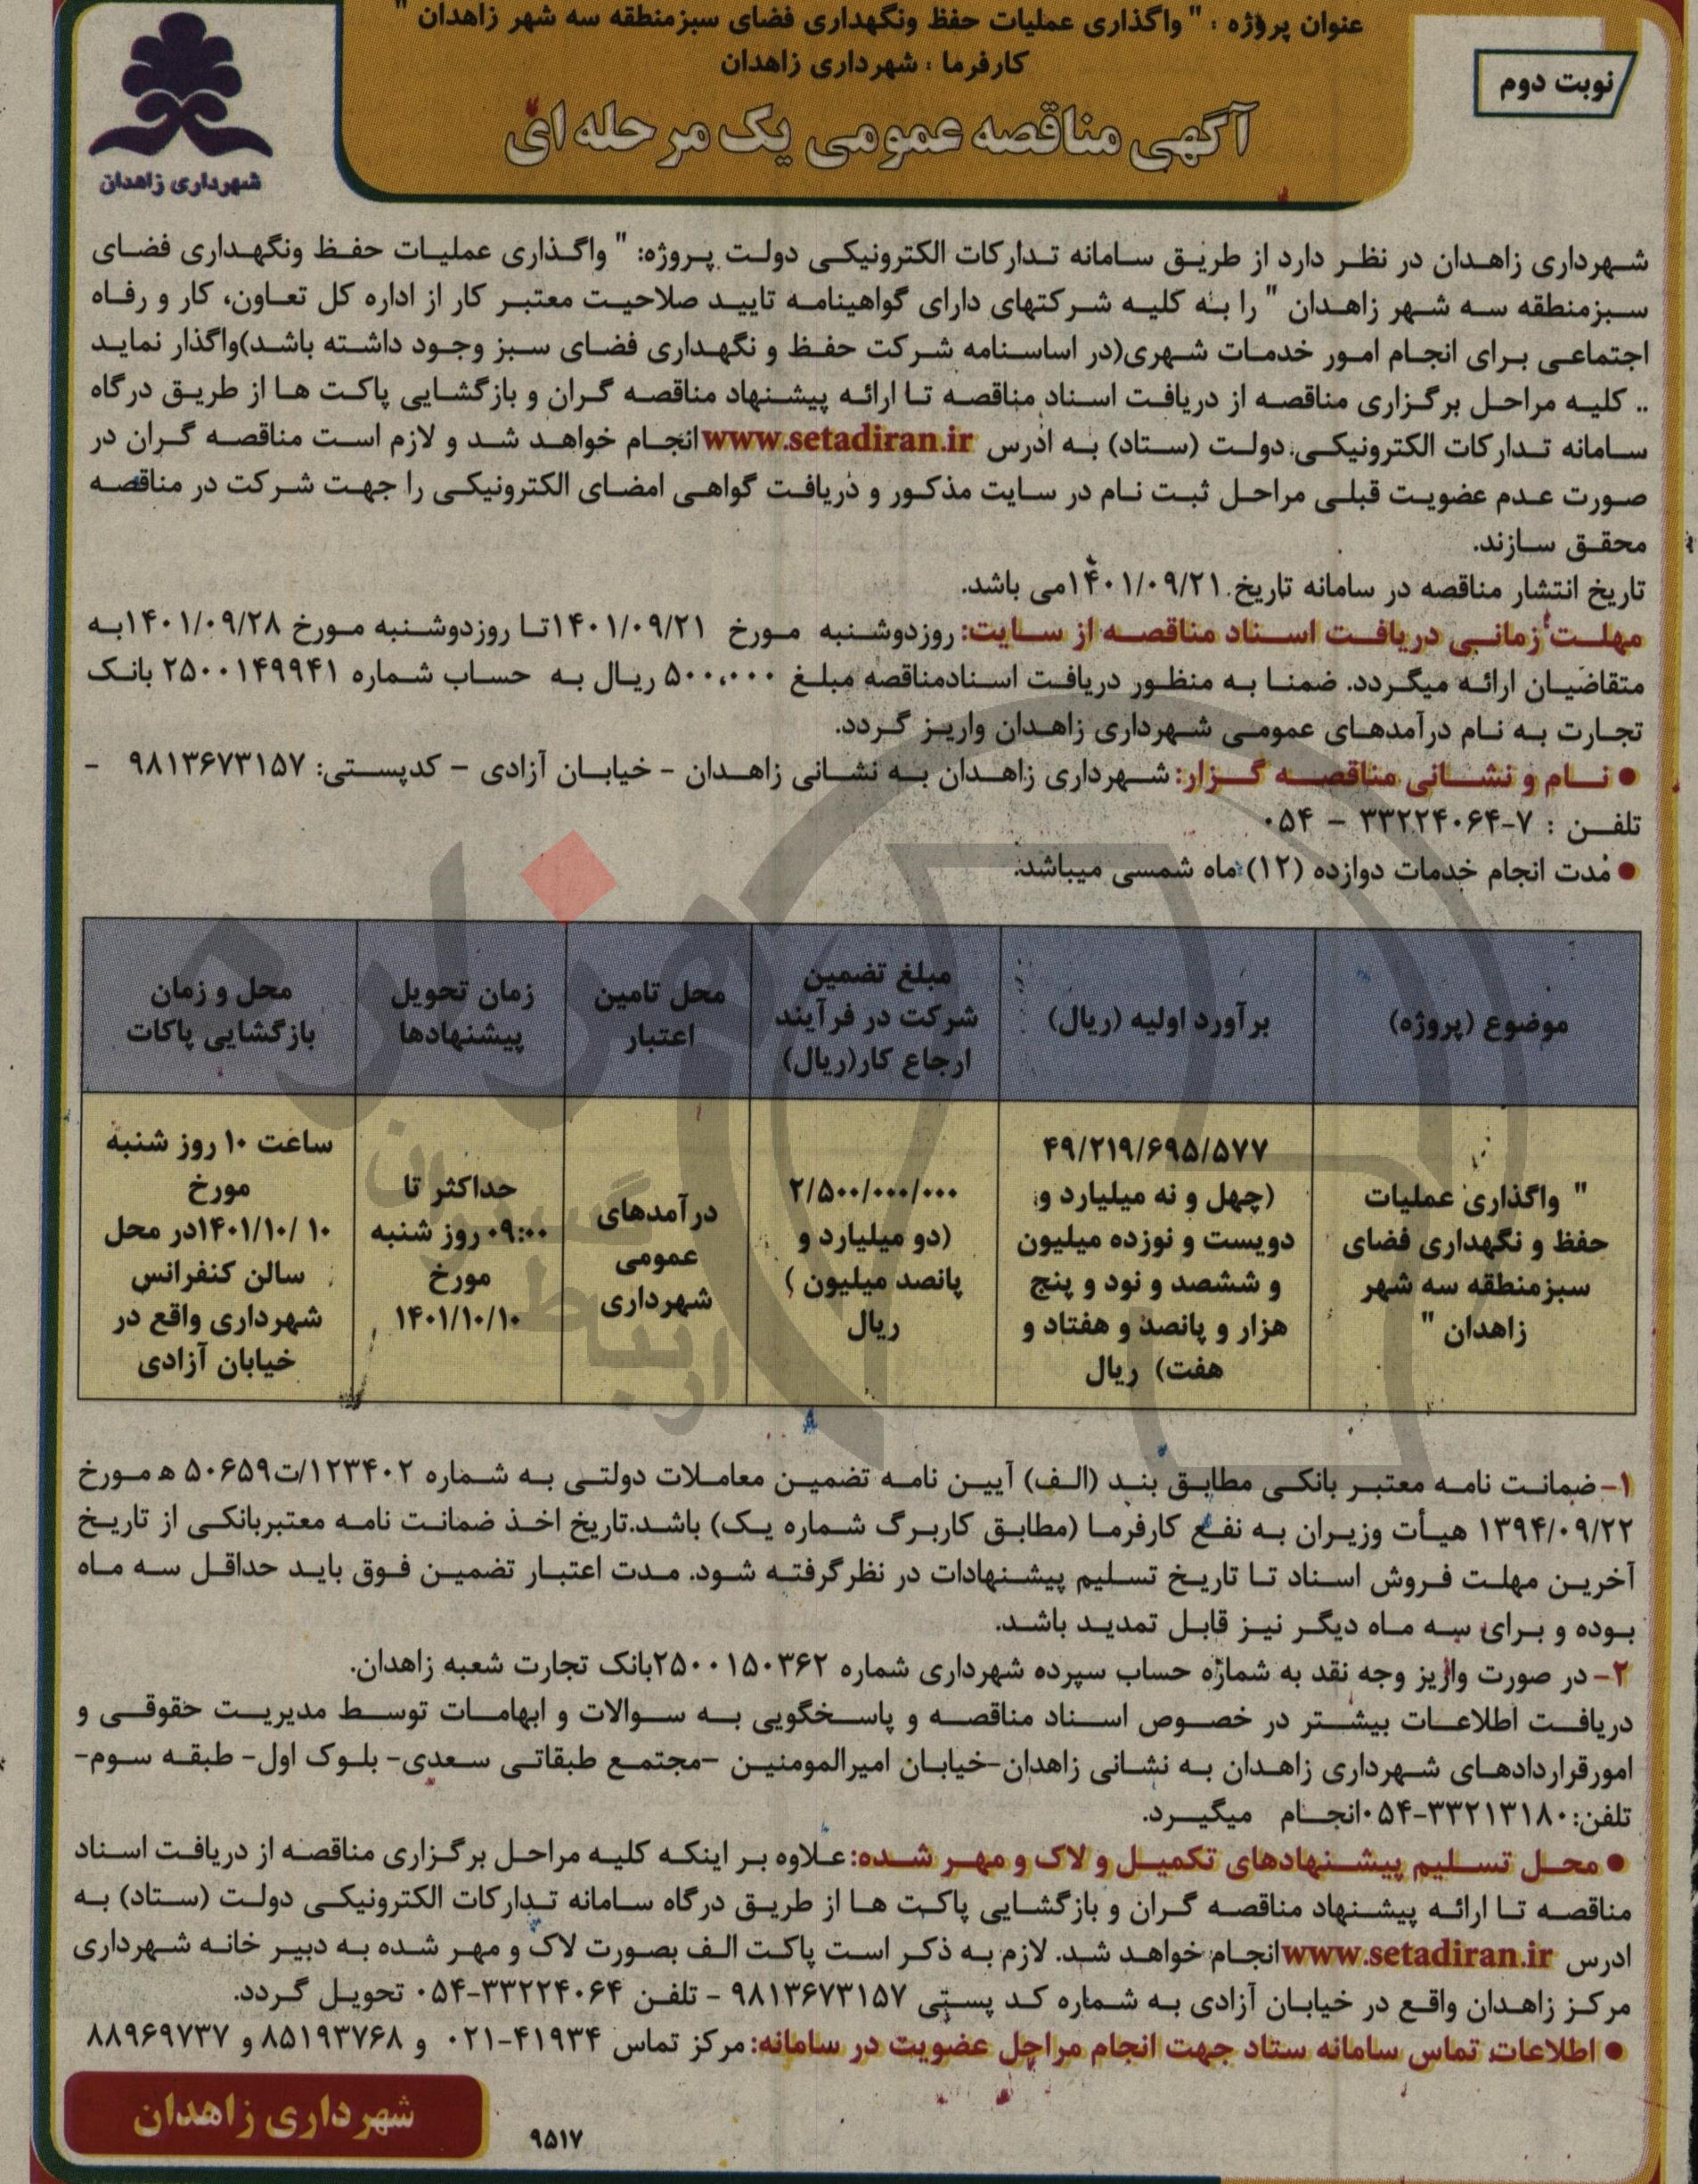 عنوان پروژه : " واگذاری عملیات حفظ ونگهداری فضای سبزمنطقه سه شهر زاهدان "
کارفرما : شهرداری زاهدان
نوبت دوم
آگهی مناقصه عمومی یک مرحله ای
شهرداری زاهدان
شهرداری زاهدان در نظر دارد از طریق سامانه تدارکات الکترونیکی دولت پروژه: " واگذاری عملیات حفظ ونگهداری فضای
سبزمنطقه سه شهر زاهدان " را به کلیه شرکتهای دارای گواهینامه تایید صلاحیت معتبر کار از اداره کل تعاون، کار و رفاه
اجتماعی برای انجام امور خدمات شهری(در اساسنامه شرکت حفظ و نگهداری فضای سبز وجود داشته باشد)واگذار نماید
.. کلیه مراحل برگزاری مناقصه از دریافت اسناد مناقصه تا ارائه پیشنهاد مناقصه گران و بازگشایی پاکت ها از طریق درگاه
سامانه تدارکات الکترونیکی دولت (ستاد) به ادرس www.setadiran.ir انجام خواهد شد و لازم است مناقصه گران در
صورت عدم عضویت قبلی مراحل ثبت نام در سایت مذکور و دریافت گواهی امضای الکترونیکی را جهت شرکت در مناقصه
محقق سازند.
تاریخ انتشار مناقصه در سامانه تاریخ ۱۴۰۱/۰۹/۲۱می باشد.
مهلت زمانی دریافت اسناد مناقصه از سایت: روزدوشنبه مورخ ۱۴۰۱/۰۹/۲۱تا روزدوشنبه مورخ ۱۴۰۱/۰۹/۲۸به
متقاضیان ارائه میگردد. ضمنا به منظور دریافت اسنادمناقصه مبلغ ۵۰۰،۰۰۰ ریال به حساب شماره ۲۵۰۰۱۴۹۹۴۱ بانک
تجارت به نام درآمدهای عمومی شهرداری زاهدان واریز گردد.
● نام و نشانی مناقصه گزار: شهرداری زاهدان به نشانی زاهدان - خیابان آزادی – کدپستی: ۹۸۱۳۶۷۳۱۵۷ -
تلفن : ۷-۳۳۲۲۴۰۶۴ – ۰۵۴
● مدت انجام خدمات دوازده (۱۲) ماه شمسی میباشد.
موضوع (پروژه)
برآورد اولیه (ریال)
مبلغ تضمین
شرکت در فرآیند
ارجاع کار(ریال)
محل تامین
اعتبار
زمان تحویل
پیشنهادها
محل و زمان
بازگشایی پاکات
" واگذاری عملیات
حفظ و نگهداری فضای
سبزمنطقه سه شهر
زاهدان "
۴۹/۲۱۹/۶۹۵/۵۷۷
(چهل و نه میلیارد و
دویست و نوزده میلیون
و ششصد و نود و پنج
هزار و پانصد و هفتاد و
هفت) ریال
۲/۵۰۰/۰۰۰/۰۰۰
(دو میلیارد و
پانصد میلیون )
ریال
درآمدهای
عمومی
شهرداری
حداکثر تا
۰۹:۰۰ روز شنبه
مورخ
۱۴۰۱/۱۰/۱۰
ساعت ۱۰ روز شنبه
مورخ
۱۴۰۱/۱۰/ ۱۰در محل
سالن کنفرانس
شهرداری واقع در
خیابان آزادی
۱- ضمانت نامه معتبر بانکی مطابق بند (الف) آیین نامه تضمین معاملات دولتی به شماره ۱۲۳۴۰۲/ت۵۰۶۵۹ ه مورخ
۱۳۹۴/۰۹/۲۲ هیأت وزیران به نفع کارفرما (مطابق کاربرگ شماره یک) باشد.تاریخ اخذ ضمانت نامه معتبربانکی از تاریخ
آخرین مهلت فروش اسناد تا تاریخ تسلیم پیشنهادات در نظرگرفته شود. مدت اعتبار تضمین فوق باید حداقل سه ماه
بوده و برای سه ماه دیگر نیز قابل تمدید باشد.
۲- در صورت واریز وجه نقد به شماره حساب سپرده شهرداری شماره ۲۵۰۰۱۵۰۳۶۲بانک تجارت شعبه زاهدان.
دریافت اطلاعات بیشتر در خصوص اسناد مناقصه و پاسخگویی به سوالات و ابهامات توسط مدیریت حقوقی و
امورقراردادهای شهرداری زاهدان به نشانی زاهدان-خیابان امیرالمومنین -مجتمع طبقاتی سعدی- بلوک اول- طبقه سوم-
تلفن:۰۵۴-۳۳۲۱۳۱۸۰انجام میگیرد.
● محل تسلیم پیشنهادهای تکمیل و لاک و مهر شده: علاوه بر اینکه کلیه مراحل برگزاری مناقصه از دریافت اسناد
مناقصه تا ارائه پیشنهاد مناقصه گران و بازگشایی پاکت ها از طریق درگاه سامانه تدارکات الکترونیکی دولت (ستاد) به
ادرس www.setadiran.ir انجام خواهد شد. لازم به ذکر است پاکت الف بصورت لاک و مهر شده به دبیر خانه شهرداری
مرکز زاهدان واقع در خیابان آزادی به شماره کد پستی ۹۸۱۳۶۷۳۱۵۷ - تلفن ۰۵۴-۳۳۲۲۴۰۶۴ تحویل گردد.
● اطلاعات تماس سامانه ستاد جهت انجام مراحل عضویت در سامانه: مرکز تماس ۰۲۱-۴۱۹۳۴ و ۸۵۱۹۳۷۶۸ و ۸۸۹۶۹۷۳۷
شهرداری زاهدان
۹۵۱۷